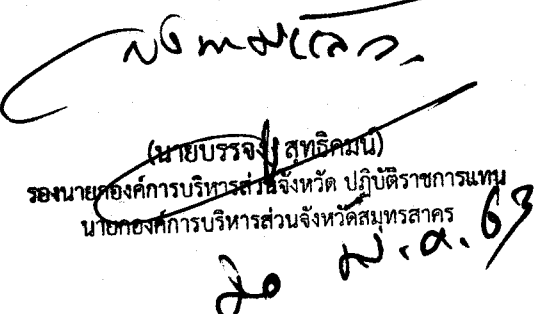 ลงนามแล้ว
(นายบรรจง สุทธิคมน์)
รองนายกองค์การบริหารส่วนจังหวัด ปฏิบัติราชการแทน
นายกองค์การบริหารส่วนจังหวัดสมุทรสาคร
ม.ค. 63